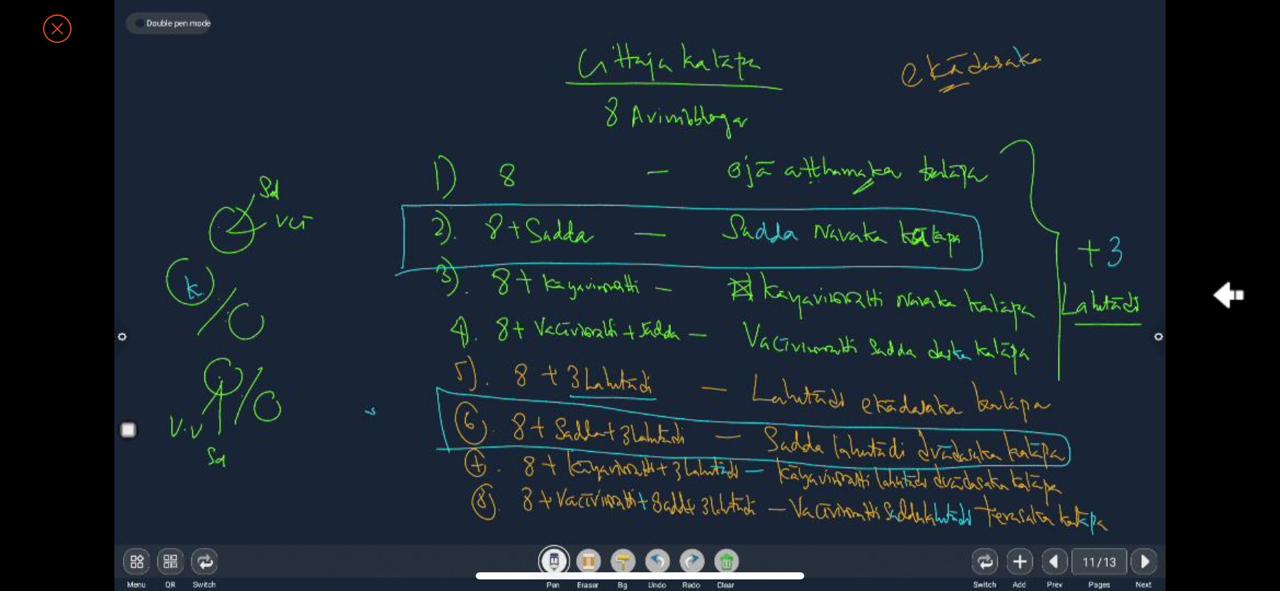 Double pen mode
Cittaja kalāpa
ekādasaka
8 Avinibbhoga
1) 8 — ojā aṭṭhamaka kalāpa
2). 8 + Sadda — Sadda Navaka kalāpa
3). 8 + kāyaviññatti — kāyaviññatti navaka kalāpa
4). 8 + Vacīviññatti + sadda — Vacīviññatti sadda dasaka kalāpa
+3
Lahutādi
5). 8 + 3 Lahutādi — Lahutādi ekādasaka kalāpa
6. 8 + Sadda + 3 lahutādi — Sadda lahutādi dvādasaka kalāpa
7. 8 + kāyaviññatti + 3 lahutādi — kāyaviññatti lahutādi dvādasaka kalāpa
8. 8 + Vacīviññatti + Sadda + 3 lahutādi — Vacīviññatti Sadda lahutādi terasaka kalāpa
Sd
Vcī
k
V.V
Sd
Menu QR Switch Pen Eraser Bg Undo Redo Clear Switch Add Prev 11/13 Pages Next